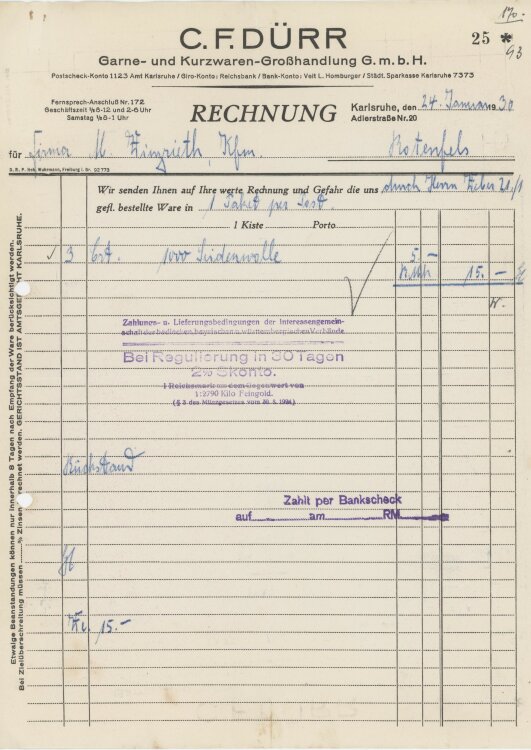 170.
C. F. DÜRR
25 * 93
Garne- und Kurzwaren-Großhandlung G. m. b. H.
Postscheck-Konto 1123 Amt Karlsruhe / Giro-Konto: Reichsbank / Bank-Konto: Veit L. Homburger / Städt. Sparkasse Karlsruhe 7373
Fernsprech-Anschluß Nr. 172
Geschäftszeit ½8-12 und 2-6 Uhr
Samstag ½8-1 Uhr
RECHNUNG
Karlsruhe, den 24. Januar 1930
Adlerstraße Nr. 20
für Firma M. Kfm. Rotenfels
D. R. P. Heh. Muhrmann, Freiburg i. Br. 02773
Wir senden Ihnen auf Ihre werte Rechnung und Gefahr die uns durch Herrn 21/1
gefl. bestellte Ware in 1 Paket per Post.
1 Kiste Porto
3 Crt. 1000 Seidenwolle 5.-
15.-
Zahlungs- u. Lieferungsbedingungen der Interessengemein-
schaft der badischen, bayrischen u. württembergischen Verbände
Bei Regulierung in 30 Tagen
2% Skonto.
1 Reichsmark aus dem Gegenwert von
1:2790 Kilo Feingold.
(§ 3 des Münzgesetzes vom 30. 8. 1924)
Rückstand
Zahlt per Bankscheck
auf am RM
15.-
Etwaige Beanstandungen können nur innerhalb 8 Tagen nach Empfang der Ware berücksichtigt werden.
Bei Zielüberschreitung müssen % Zinsen berechnet werden. GERICHTSSTAND IST AMTSGERICHT KARLSRUHE.